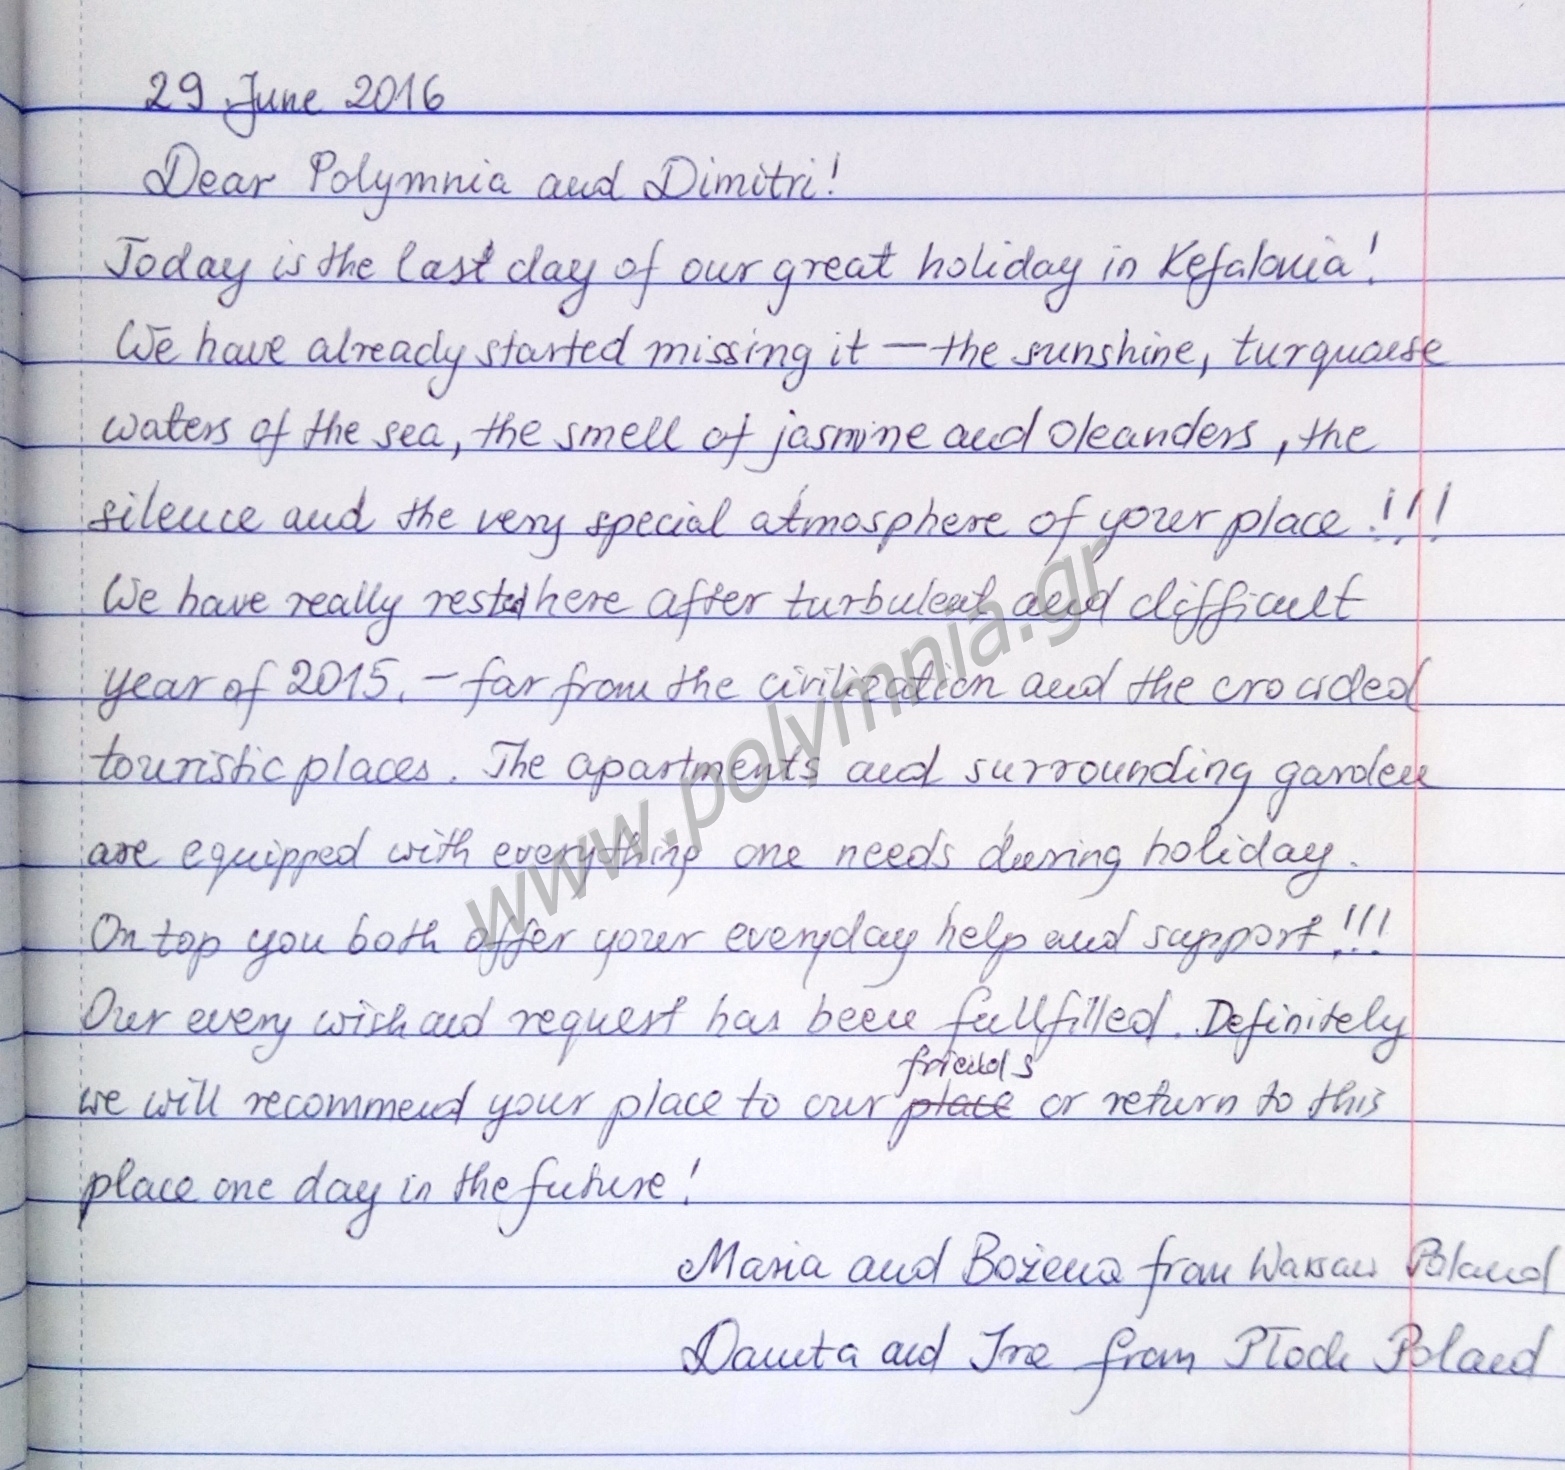 29 June 2016
Dear Polymnia and Dimitri!
Today is the last day of our great holiday in Kefalonia!
We have already started missing it – the sunshine, turquoise
waters of the sea, the smell of jasmine and oleanders, the
silence and the very special atmosphere of your place!!!
We have really rested here after turbulent and difficult
year of 2015. – far from the civilization and the crowded
touristic places. The apartments and surrounding garden
are equipped with everything one needs during holiday.
On top you both offer your everyday help and support!!!
Our every wish and request has been fullfilled. Definitely
friends
we will recommend your place to our place or return to this
place one day in the future!
Maria and Bożena from Warsaw Poland
Danuta and Ira from Płock Poland
www.polymnia.gr